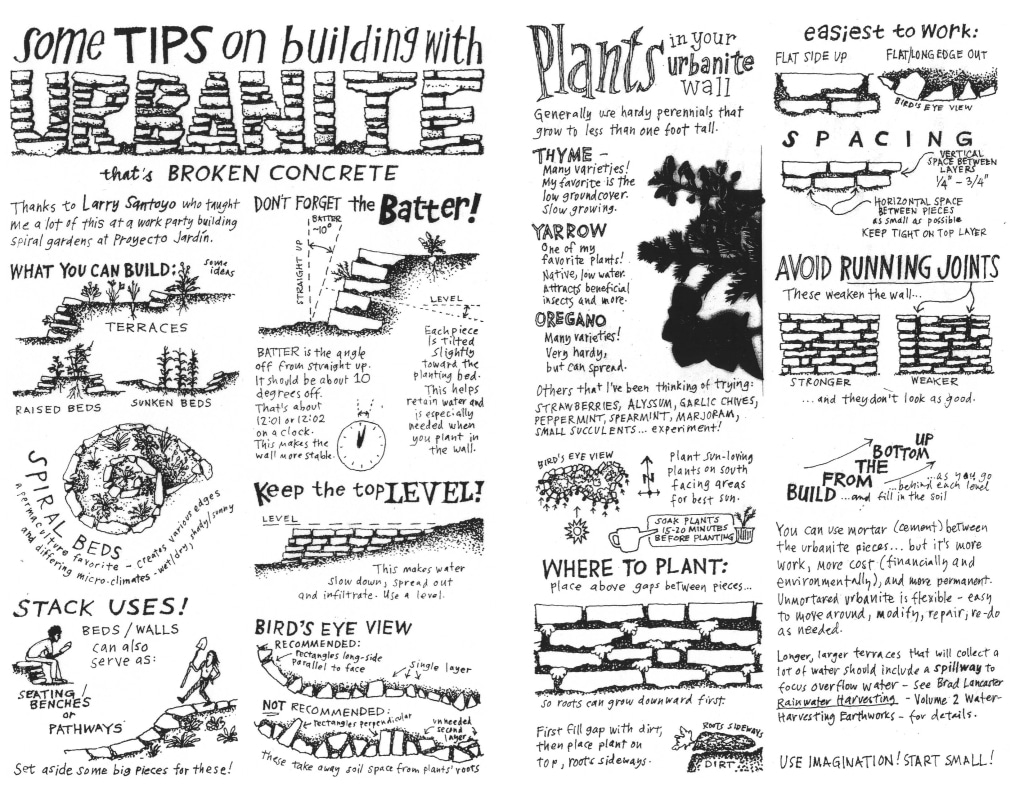 some TIPS on building with
URBANITE
that's BROKEN CONCRETE
Thanks to Larry Santoyo who taught
me a lot of this at a work party building
spiral gardens at Proyecto Jardín.
WHAT YOU CAN BUILD:
some
ideas
TERRACES
RAISED BEDS
SUNKEN BEDS
SPIRAL BEDS
a permaculture favorite - creates various edges
and differing micro-climates - wet/dry, shady/sunny
STACK USES!
BEDS/WALLS
can also
serve as:
SEATING/
BENCHES
or
PATHWAYS
Set aside some big pieces for these!
DON'T FORGET the Batter!
BATTER
~10°
STRAIGHT UP
LEVEL
BATTER is the angle
off from straight up.
It should be about 10
degrees off.
That's about
12:01 or 12:02
on a clock.
This makes the
wall more stable.
Each piece
is tilted
slightly
toward the
planting bed.
This helps
retain water and
is especially
needed when
you plant in
the wall.
Keep the top LEVEL!
LEVEL
This makes water
slow down, spread out
and infiltrate. Use a level.
BIRD'S EYE VIEW
RECOMMENDED:
rectangles long-side
parallel to face
single layer
NOT RECOMMENDED:
rectangles perpendicular
unneeded
second
layer
These take away soil space from plants' roots
Plants in your
urbanite
wall
Generally use hardy perennials that
grow to less than one foot tall.
THYME -
Many varieties!
My favorite is the
low groundcover.
Slow growing.
YARROW
One of my
favorite plants!
Native, low water.
Attracts beneficial
insects and more.
OREGANO
Many varieties!
Very hardy,
but can spread.
Others that I've been thinking of trying:
STRAWBERRIES, ALYSSUM, GARLIC CHIVES,
PEPPERMINT, SPEARMINT, MARJORAM,
SMALL SUCCULENTS... experiment!
BIRD'S EYE VIEW
N
Plant sun-loving
plants on south
facing areas
for best sun.
SOAK PLANTS
15-20 MINUTES
BEFORE PLANTING
WHERE TO PLANT:
place above gaps between pieces...
so roots can grow downward first.
First fill gap with dirt,
then place plant on
top, roots sideways.
ROOTS SIDEWAYS
DIRT
easiest to work:
FLAT SIDE UP
FLAT/LONG EDGE OUT
BIRD'S EYE VIEW
SPACING
VERTICAL
SPACE BETWEEN
LAYERS
1/4" - 3/4"
HORIZONTAL SPACE
BETWEEN PIECES
as small as possible
KEEP TIGHT ON TOP LAYER
AVOID RUNNING JOINTS
These weaken the wall...
STRONGER
WEAKER
...and they don't look as good.
BUILD FROM THE BOTTOM UP
...and fill in the soil
...behind each level
...as you go
You can use mortar (cement) between
the urbanite pieces... but it's more
work, more cost (financially and
environmentally), and more permanent.
Unmortared urbanite is flexible - easy
to move around, modify, repair, re-do
as needed.
Longer, larger terraces that will collect a
lot of water should include a spillway to
focus overflow water - see Brad Lancaster
Rainwater Harvesting - Volume 2 Water-
Harvesting Earthworks - for details.
USE IMAGINATION! START SMALL!